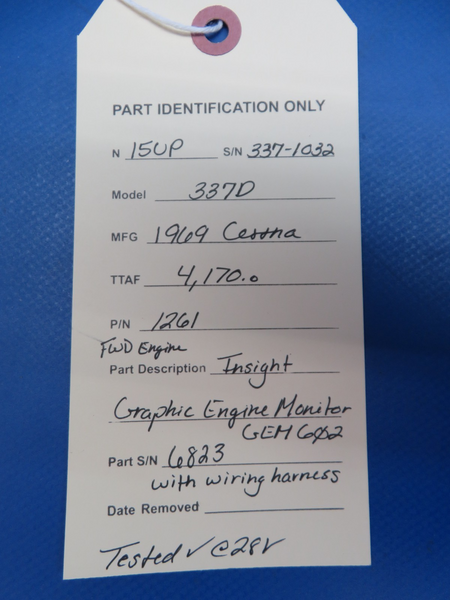 PART IDENTIFICATION ONLY
N 15UP S/N 337-1032
Model 337D
MFG 1969 Cessna
TTAF 4,170.0
P/N 1261
FWD Engine
Part Description Insight
Graphic Engine Monitor
GEM 602
Part S/N 6823
with wiring harness
Date Removed
Tested ✓ @28V